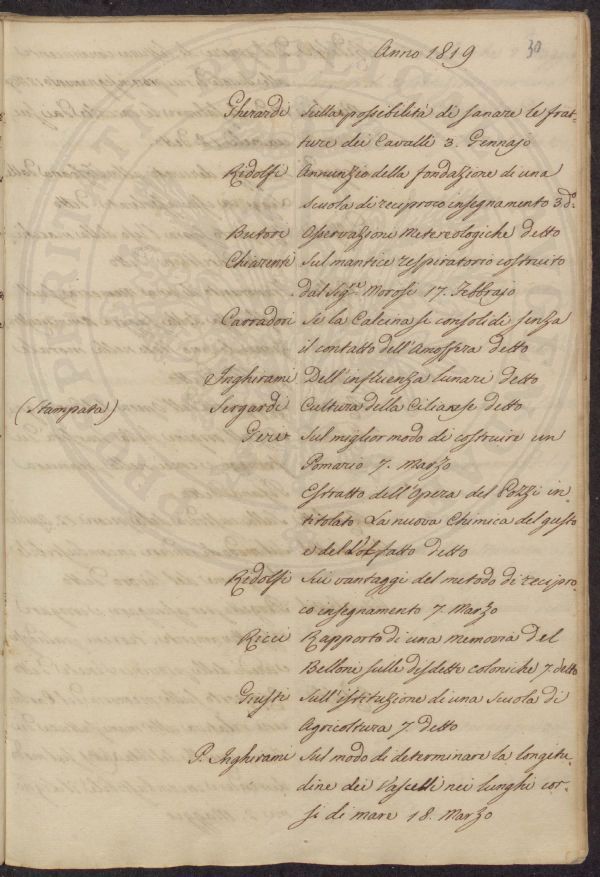 Anno 1819
30
Gherardi Sulla possibilità di sanare le frat-
ture dei Cavalli 3. Gennajo
Ridolfi Annunzio della fondazione di una
scuola di reciproco insegnamento 3 do.
Butori Osservazioni Metereologiche detto
Chiarenti Sul mantice respiratorio costruito
dal Sigre. Morosi 17. Febbrajo
Carradori Se la Calcina si consolidi senza
il contatto dell'Amosfera detto
Inghirami Dell'influenza lunare detto
(Stampata) Sergardi Cultura della Ciliarese detto
Geri Sul miglior modo di costruire un
Pomario 7. Marzo
Estratto dell'Opera del Pozzi in-
titolato La nuova Chimica del gusto
e dell'Olfatto detto
Ridolfi Sui vantaggi del metodo di recipro-
co insegnamento 7. Marzo
Ricci Rapporto di una memoria del
Belloni sulle disdette coloniche 7. detto
Giusti Sull'istituzione di una Scuola di
Agricoltura 7 detto
P. Inghirami Sul modo di determinare la longitu-
dine dei Vascelli nei lunghi cor-
si di mare 18. Marzo